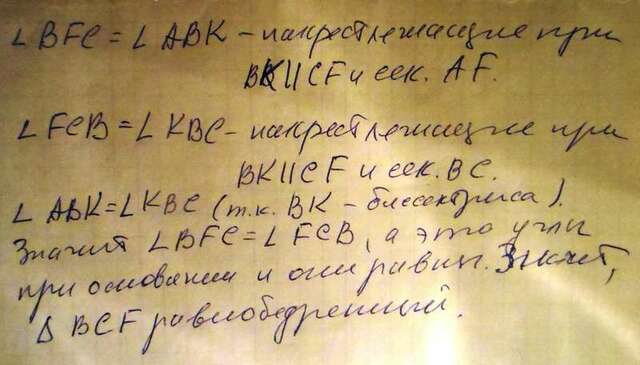 ∠BFC = ∠ABK – накрест лежащие при
BK||CF и сек. AF.
∠FCB = ∠KBC – накрест лежащие при
BK||CF и сек. BC.
∠ABK = ∠KBC (т.к. BK – биссектриса).
Значит ∠BFC = ∠FCB, а это углы
при основании и они равны. Значит,
Δ BCF равнобедренный.